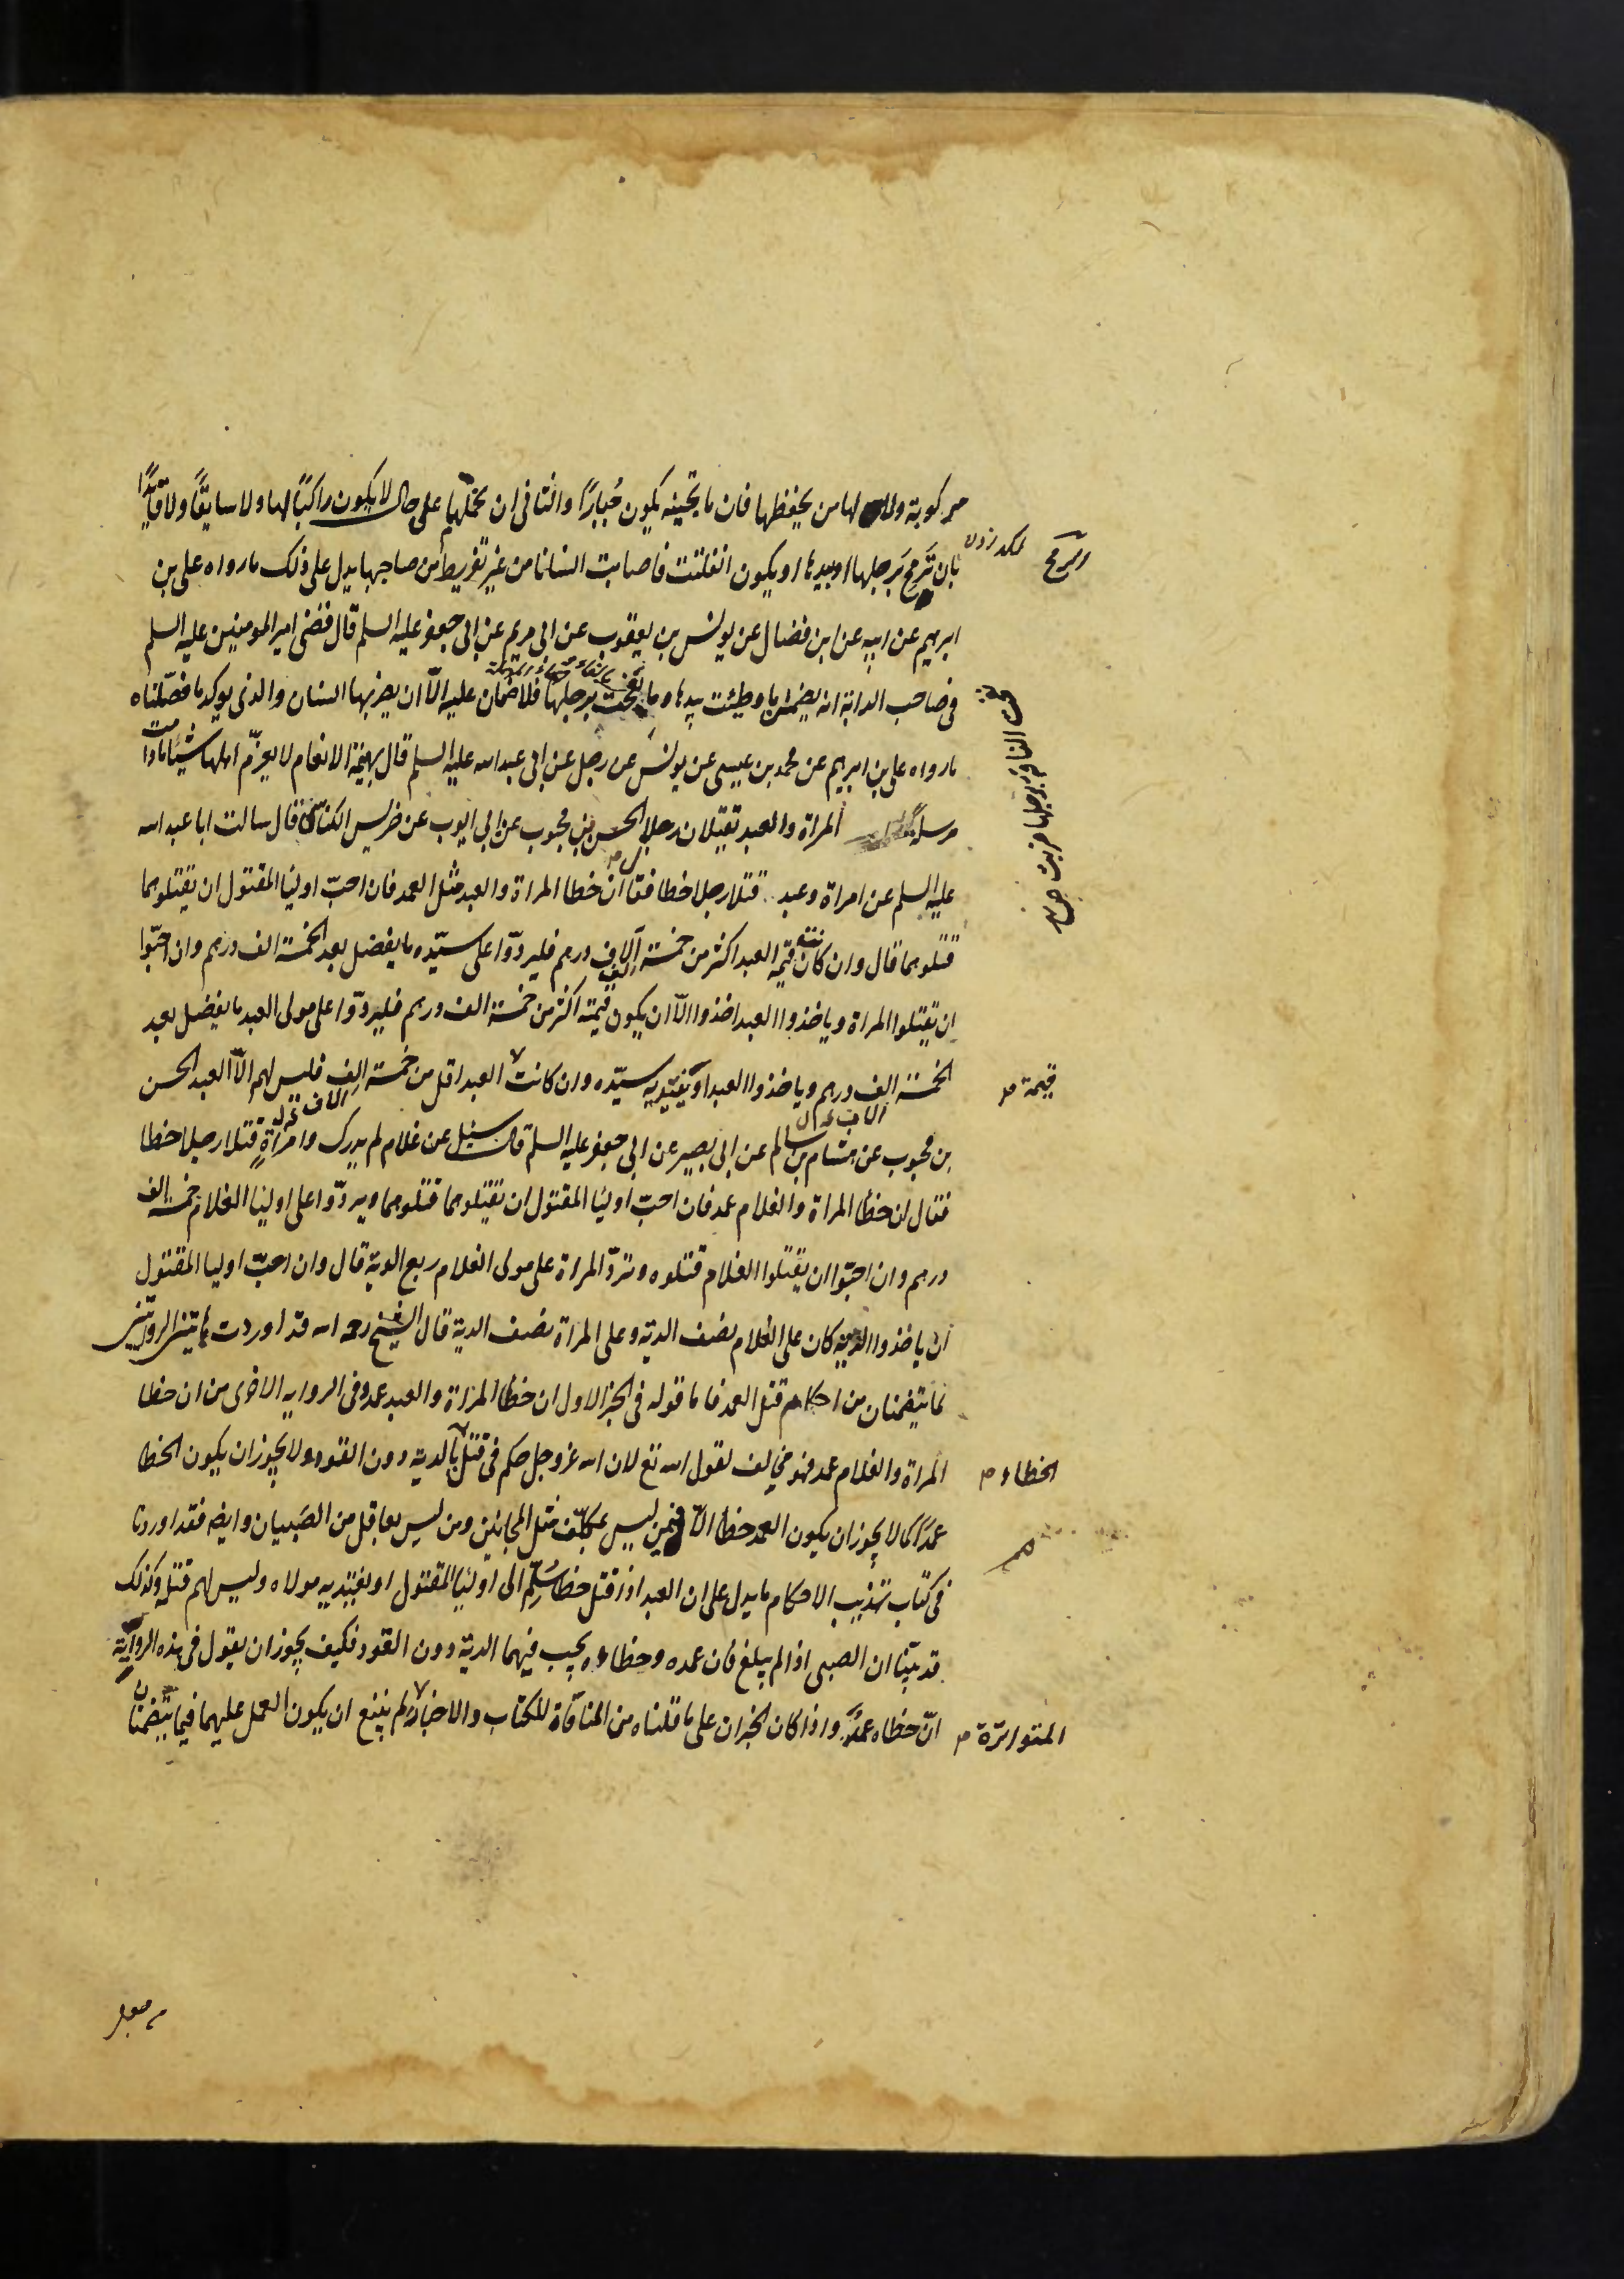 مركوبة ولا لها من يحفظها فان ما تجنيه يكون جُبارًا والثانى ان تخليها على حال لا يكون راكبًا لها ولا سايقًا ولا قايدًا
بان تَرمح برجلها او بيدها او يكون انفلتت فاصابت انسانا من غير تفريط من صاحبها يدل على ذلك ما رواه على بن
ابرهيم عن ابيه عن ابن فضال عن يونس بن يعقوب عن ابى مريم عن ابى جعفر عليه السلم قال قضى امير المومنين عليه السلم
فى صاحب الدابة انه يضمن ما وطئت بيدها وما نفحت برجلها فلا ضمان عليه الّا ان يضربها انسان والذى يوكد ما فصّلناه
ما رواه على بن ابرهيم عن محمد بن عيسى عن يونس عن رجل عن ابى عبد الله عليه السلم قال بهيمة الانعام لا يغرّم اهلها شيئا ما دامت
مرسلة المراة والعبد تقتلان رجلا الحسن بن محبوب عن ابى ايوب عن ضريس الكناسى قال سالت ابا عبد الله
عليه السلم عن امراة وعبد قتلا رجلا خطا فقال ان خطا المراة والعبد مثل العمد فان احبّ اوليا المقتول ان يقتلوهما
قتلوهما قال وان كانت قيمة العبد اكثر من خمسة آلاف درهم فليردّوا على سيّده ما يفضل بعد الخمسة الف درهم وان احبّوا
ان تقتلوا المراة وياخذوا العبد اخذوا الّا ان يكون قيمته اكثر من خمسة الف درهم فليردّوا على مولى العبد ما يفضل بعد
الخمسة الف درهم وياخذوا العبد او يفتديه سيّده وان كانت العبد اقل من خمسة الف فليس لهم الّا العبد الحسن
بن محبوب عن هشام بن سالم عن ابى بصير عن ابى جعفر عليه السلم قال سئل عن غلام لم يدرك وامراةٍ قتلا رجلا خطا
فقال ان خطا المراة والغلام عمد فان احبّ اوليا المقتول ان تقتلوهما قتلوهما ويردّوا على اوليا الغلام خمسة الف
درهم وان احبّوا ان يقتلوا الغلام قتلوه وتردّ المراة على مولى الغلام ربع الدية قال وان احبّ اوليا المقتول
ان ياخذوا الدية كان على الغلام نصف الدية وعلى المراة نصف الدية قال الشيخ رحمه الله قد اوردت هاتين الروايتين
لما تتضمنان من احكام قتل العمد فاما قوله فى الخبر الاول ان خطا المراة والعبد عمد وفى الرواية الاخرى من ان خطا
المراة والغلام عمد فهو مخالف لقول الله تع لان الله عز وجل حكم فى قتل بالدية دون القود ولا يجوز ان يكون الخطا
عمدًا كما لا يجوز ان يكون العمد خطا الّا فيمن ليس بمكلّف مثل المجانين ومن ليس بعاقل من الصَبيان وايضه فقد اوردنا
فى كتاب تهذيب الاحكام ما يدل على ان العبد اذا قتل خطا سُلِّم الى اوليا المقتول او يفتديه مولاه وليس لهم قتله وكذلك
قد بيّنا ان الصبى اذا لم يبلغ فان عمده وخطاءه يجب فيهما الدية دون القود فكيف يجوز ان يقول فى هذه الرواية
انّ خطاه عمد واذا كان الخبران على ما قلناه من المنافاة للكتاب والاخبار لم ينبغ ان يكون العمل عليهما فيما يتضمنان
لكد زدن
رمح
نفحت الناقة برجلها ضربت
قيمة
الخطاء م
المتواترة م